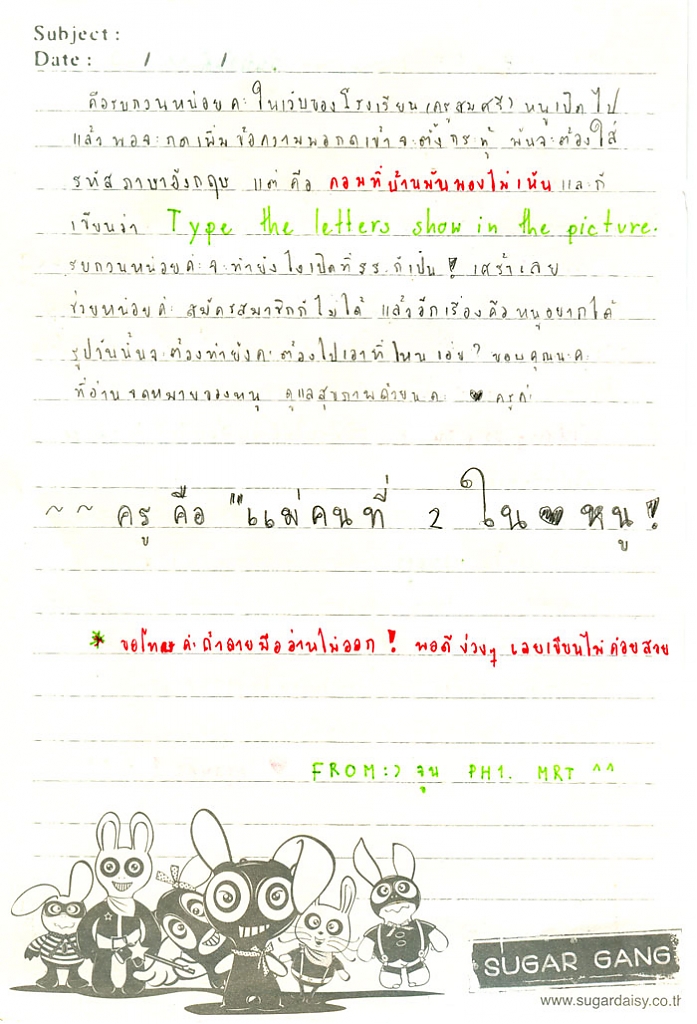 Subject :
Date : / /
คือรบกวนหน่อยค่ะ ในเว็บของโรงเรียน (ครูสมศรี) หนูเปิดไป
แล้วพอจะกดเพิ่มข้อความพอกดเข้าจะตั้งกระทู้ มันจะต้องใส่
รหัสภาษาอังกฤษ แต่ คือ คอมที่บ้านมันมองไม่เห็น และก็
เขียนว่า Type the letters show in the picture.
รบกวนหน่อยค่ะจะทำยังไงเปิดที่ รร. ก็เป็น ! เศร้าเลย
ช่วยหน่อยค่ะ สมัครสมาชิกก็ไม่ได้ แล้วอีกเรื่องคือหนูอยากได้
รูปวันนั้นจะต้องทำยังคะ ต้องไปเอาที่ไหนเอ่ย ? ขอบคุณนะคะ
ที่อ่านจดหมายของหนู ดูแลสุขภาพด้วยนะคะ ♥ ครูค่ะ
~ ~ ครู คือ "แม่คนที่ 2 ใน ♥ หนู !
* ขอโทษค่ะถ้าลายมืออ่านไม่ออก ! พอดีง่วงๆ เลยเขียนไม่ค่อยสวย
FROM :) จูน PH1. MRT ^^
SUGAR GANG
www.sugardaisy.co.th